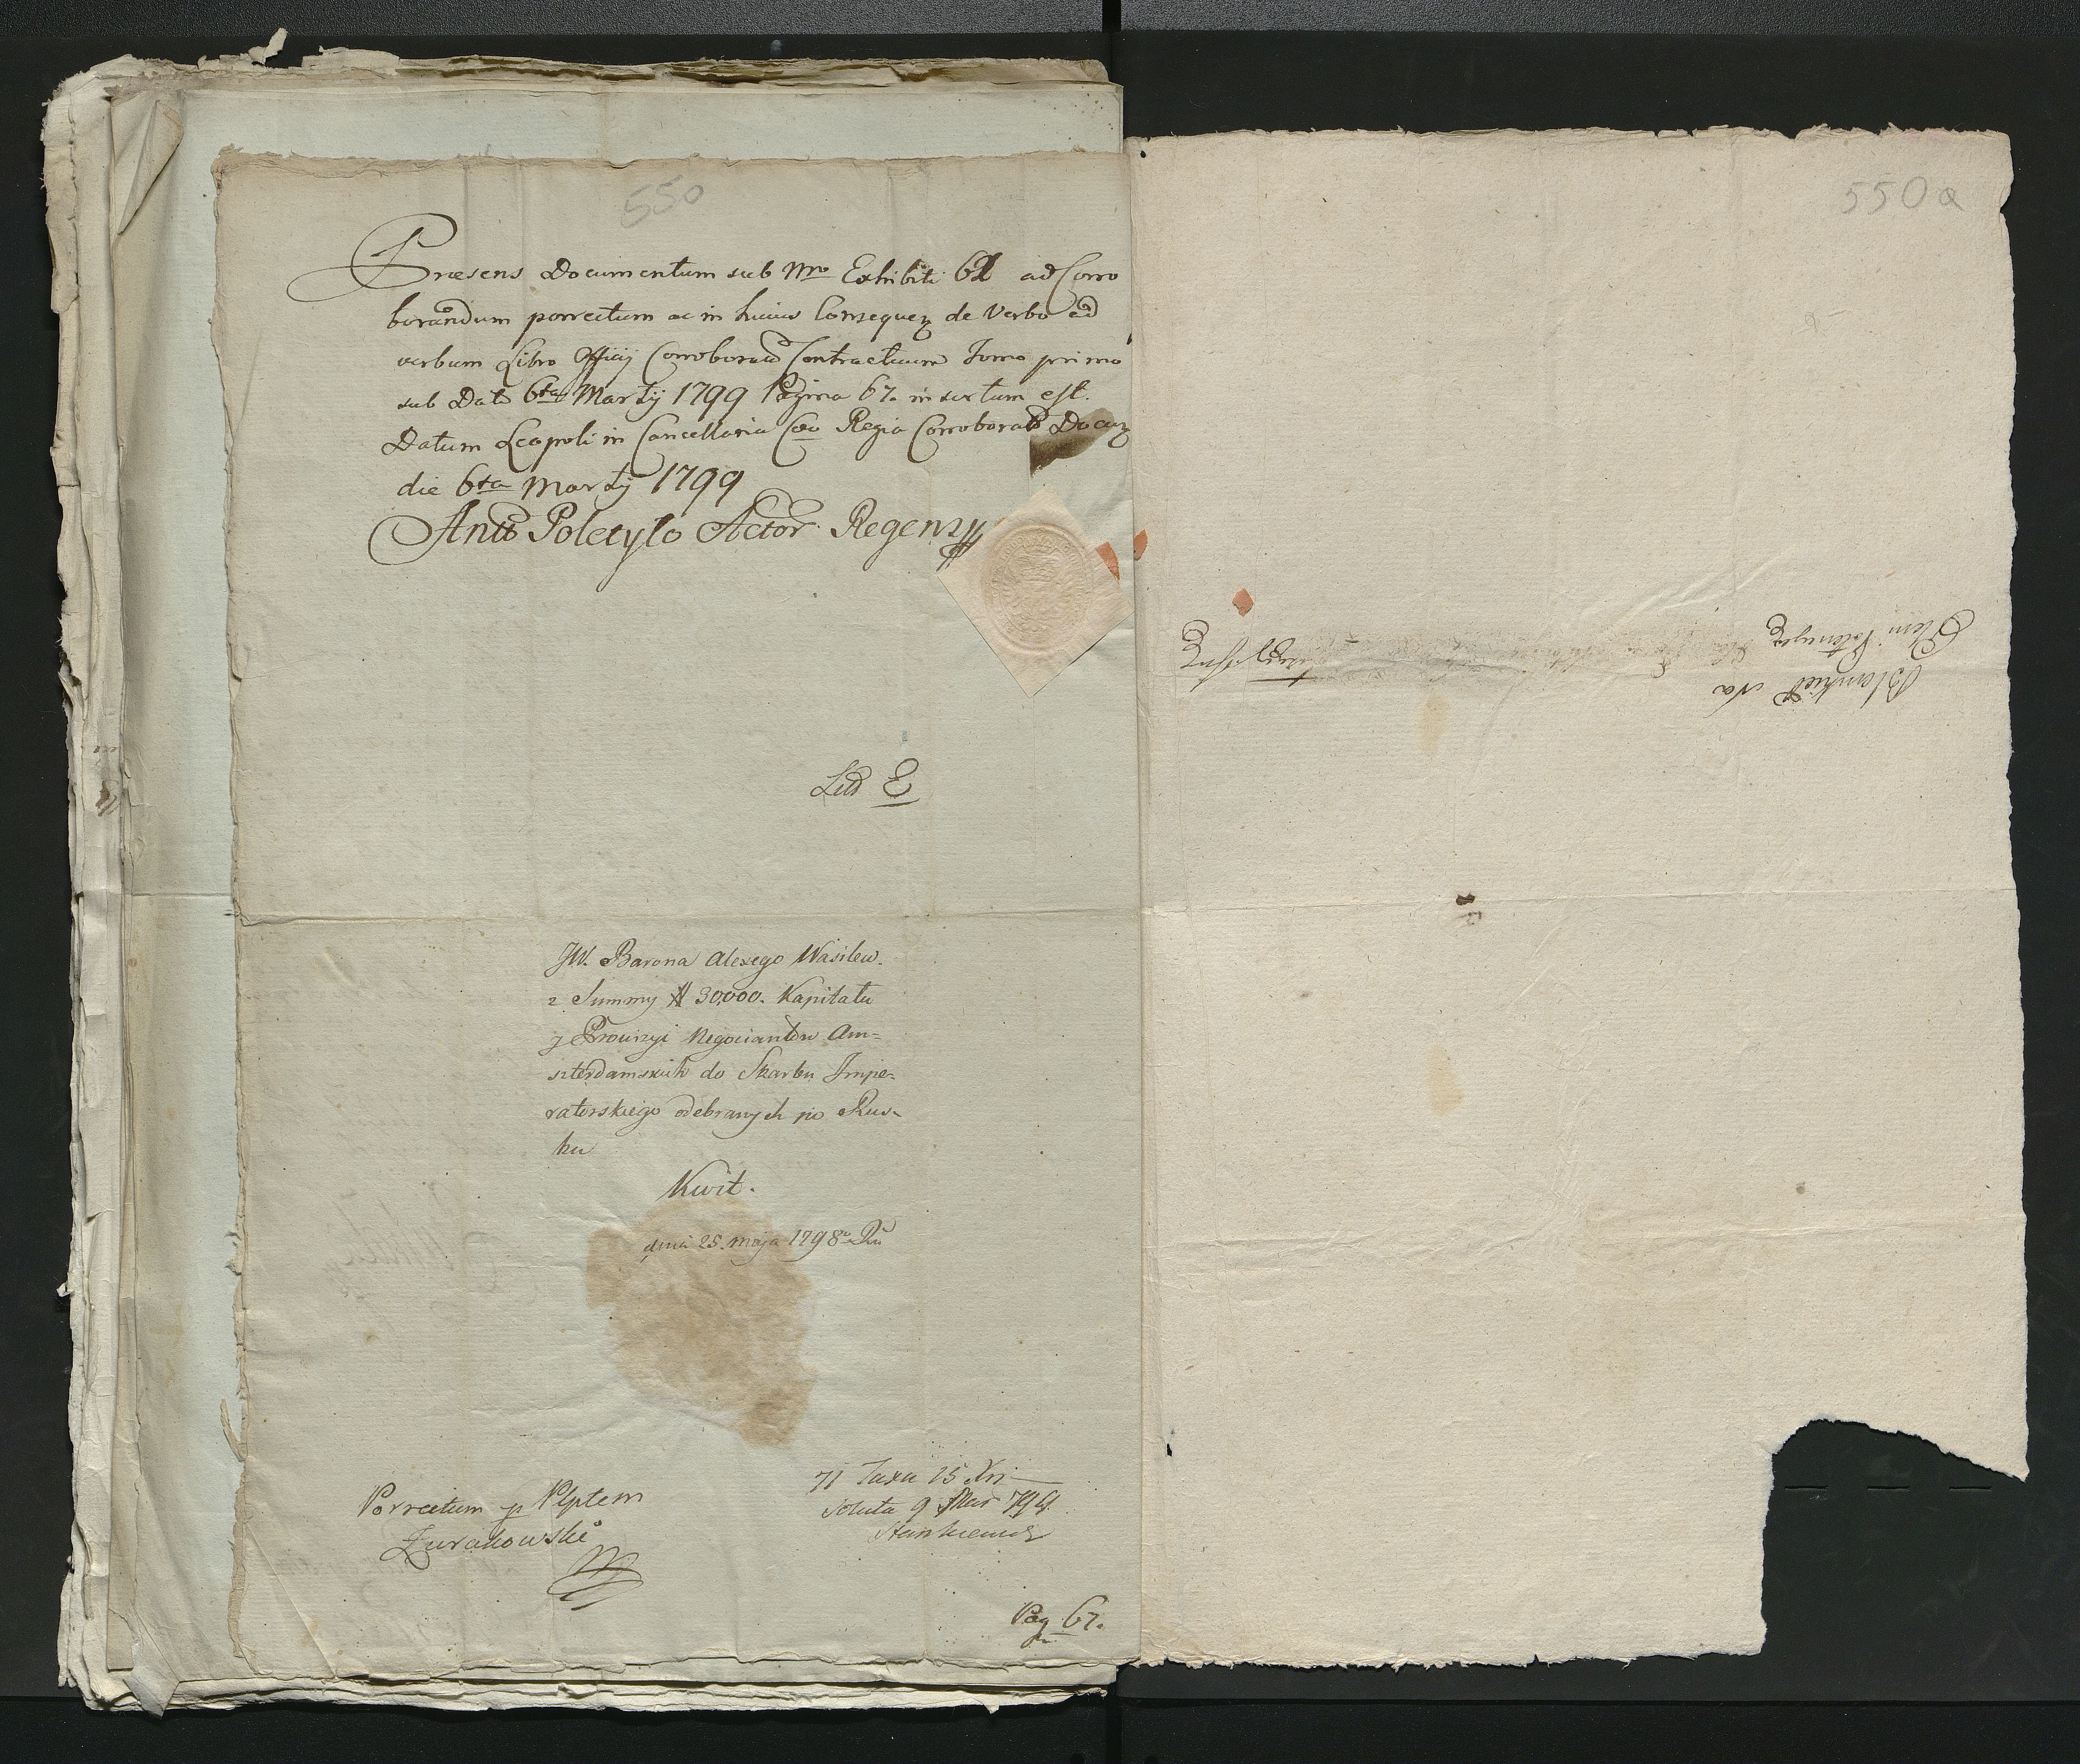 550
Præsens Documentum sub Nro Exhibiti 61 ad Corro
borandum porrectum ac in huius Conseque͂ de Verbo ad
verbum Libro Officij Corroborand Contractuum Tomo primo
sub Dato 6ta Martij 1799 Pagina 67. insertum est.
Datum Leopoli in Cancellaria Cæo Regia Corroborat͂ Docum
die 6ta Martij 1799
Poletyło Actor. Regens
E
JW. Barona Alexego Wasilew.
z Summy # 30,000. Kapitału
y Prowizyi Negociantów Am=
szterdamskich do Skarbu Impe=
ratorskiego odebranych po Rus=
ku
Kwit.
dnia 25. Maja 1798o Ru
Porrectum p
Żurakowski
71 Taxa 15 Xri
soluta 9 Mar 799
Pag 67.
550a
Blankiet na